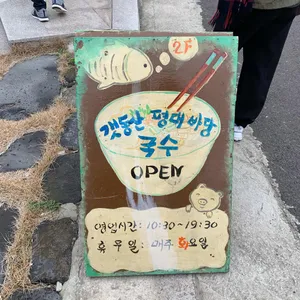 2F
갯동산 평대바당
국수
OPEN
영업시간: 10:30~19:30
휴무일: 매주 화요일